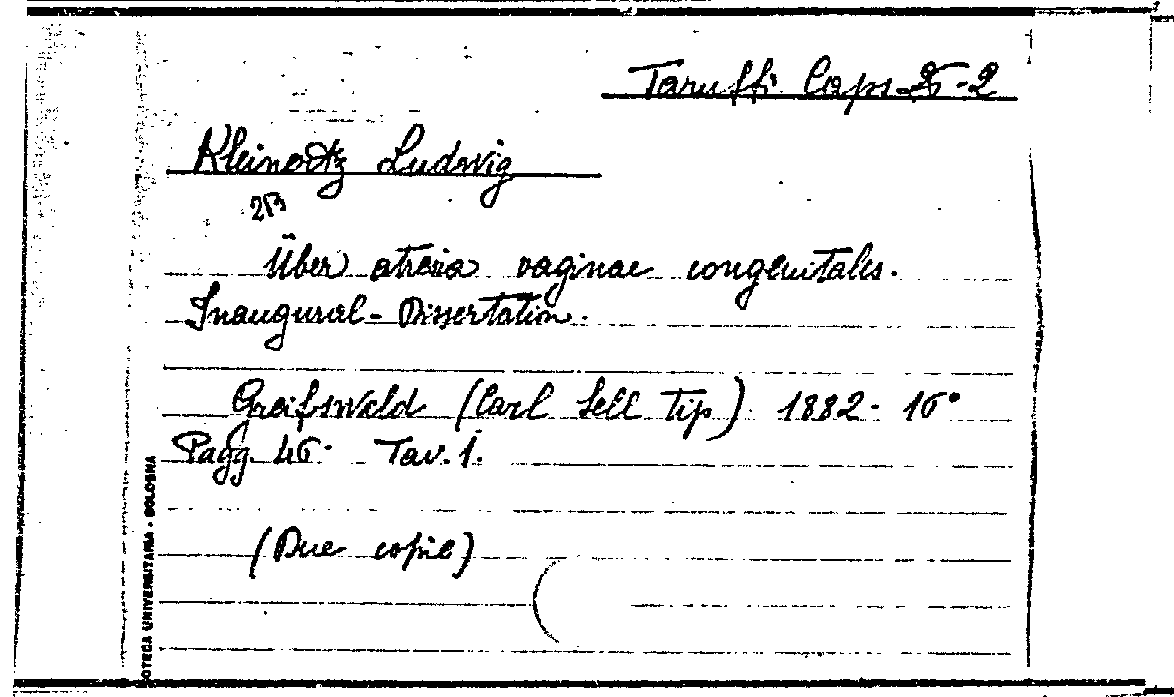 Taruffi Caps 25-2
Kleinertz Ludwig
213
Über atresia vaginae congenitales.
Inaugural-Dissertation.
Greifswald (Carl Sell Tip.) 1882. 16°
Pagg. 46. Tav. 1.
(Due copie)
OTECA UNIVERSITARIA - BOLOGNA